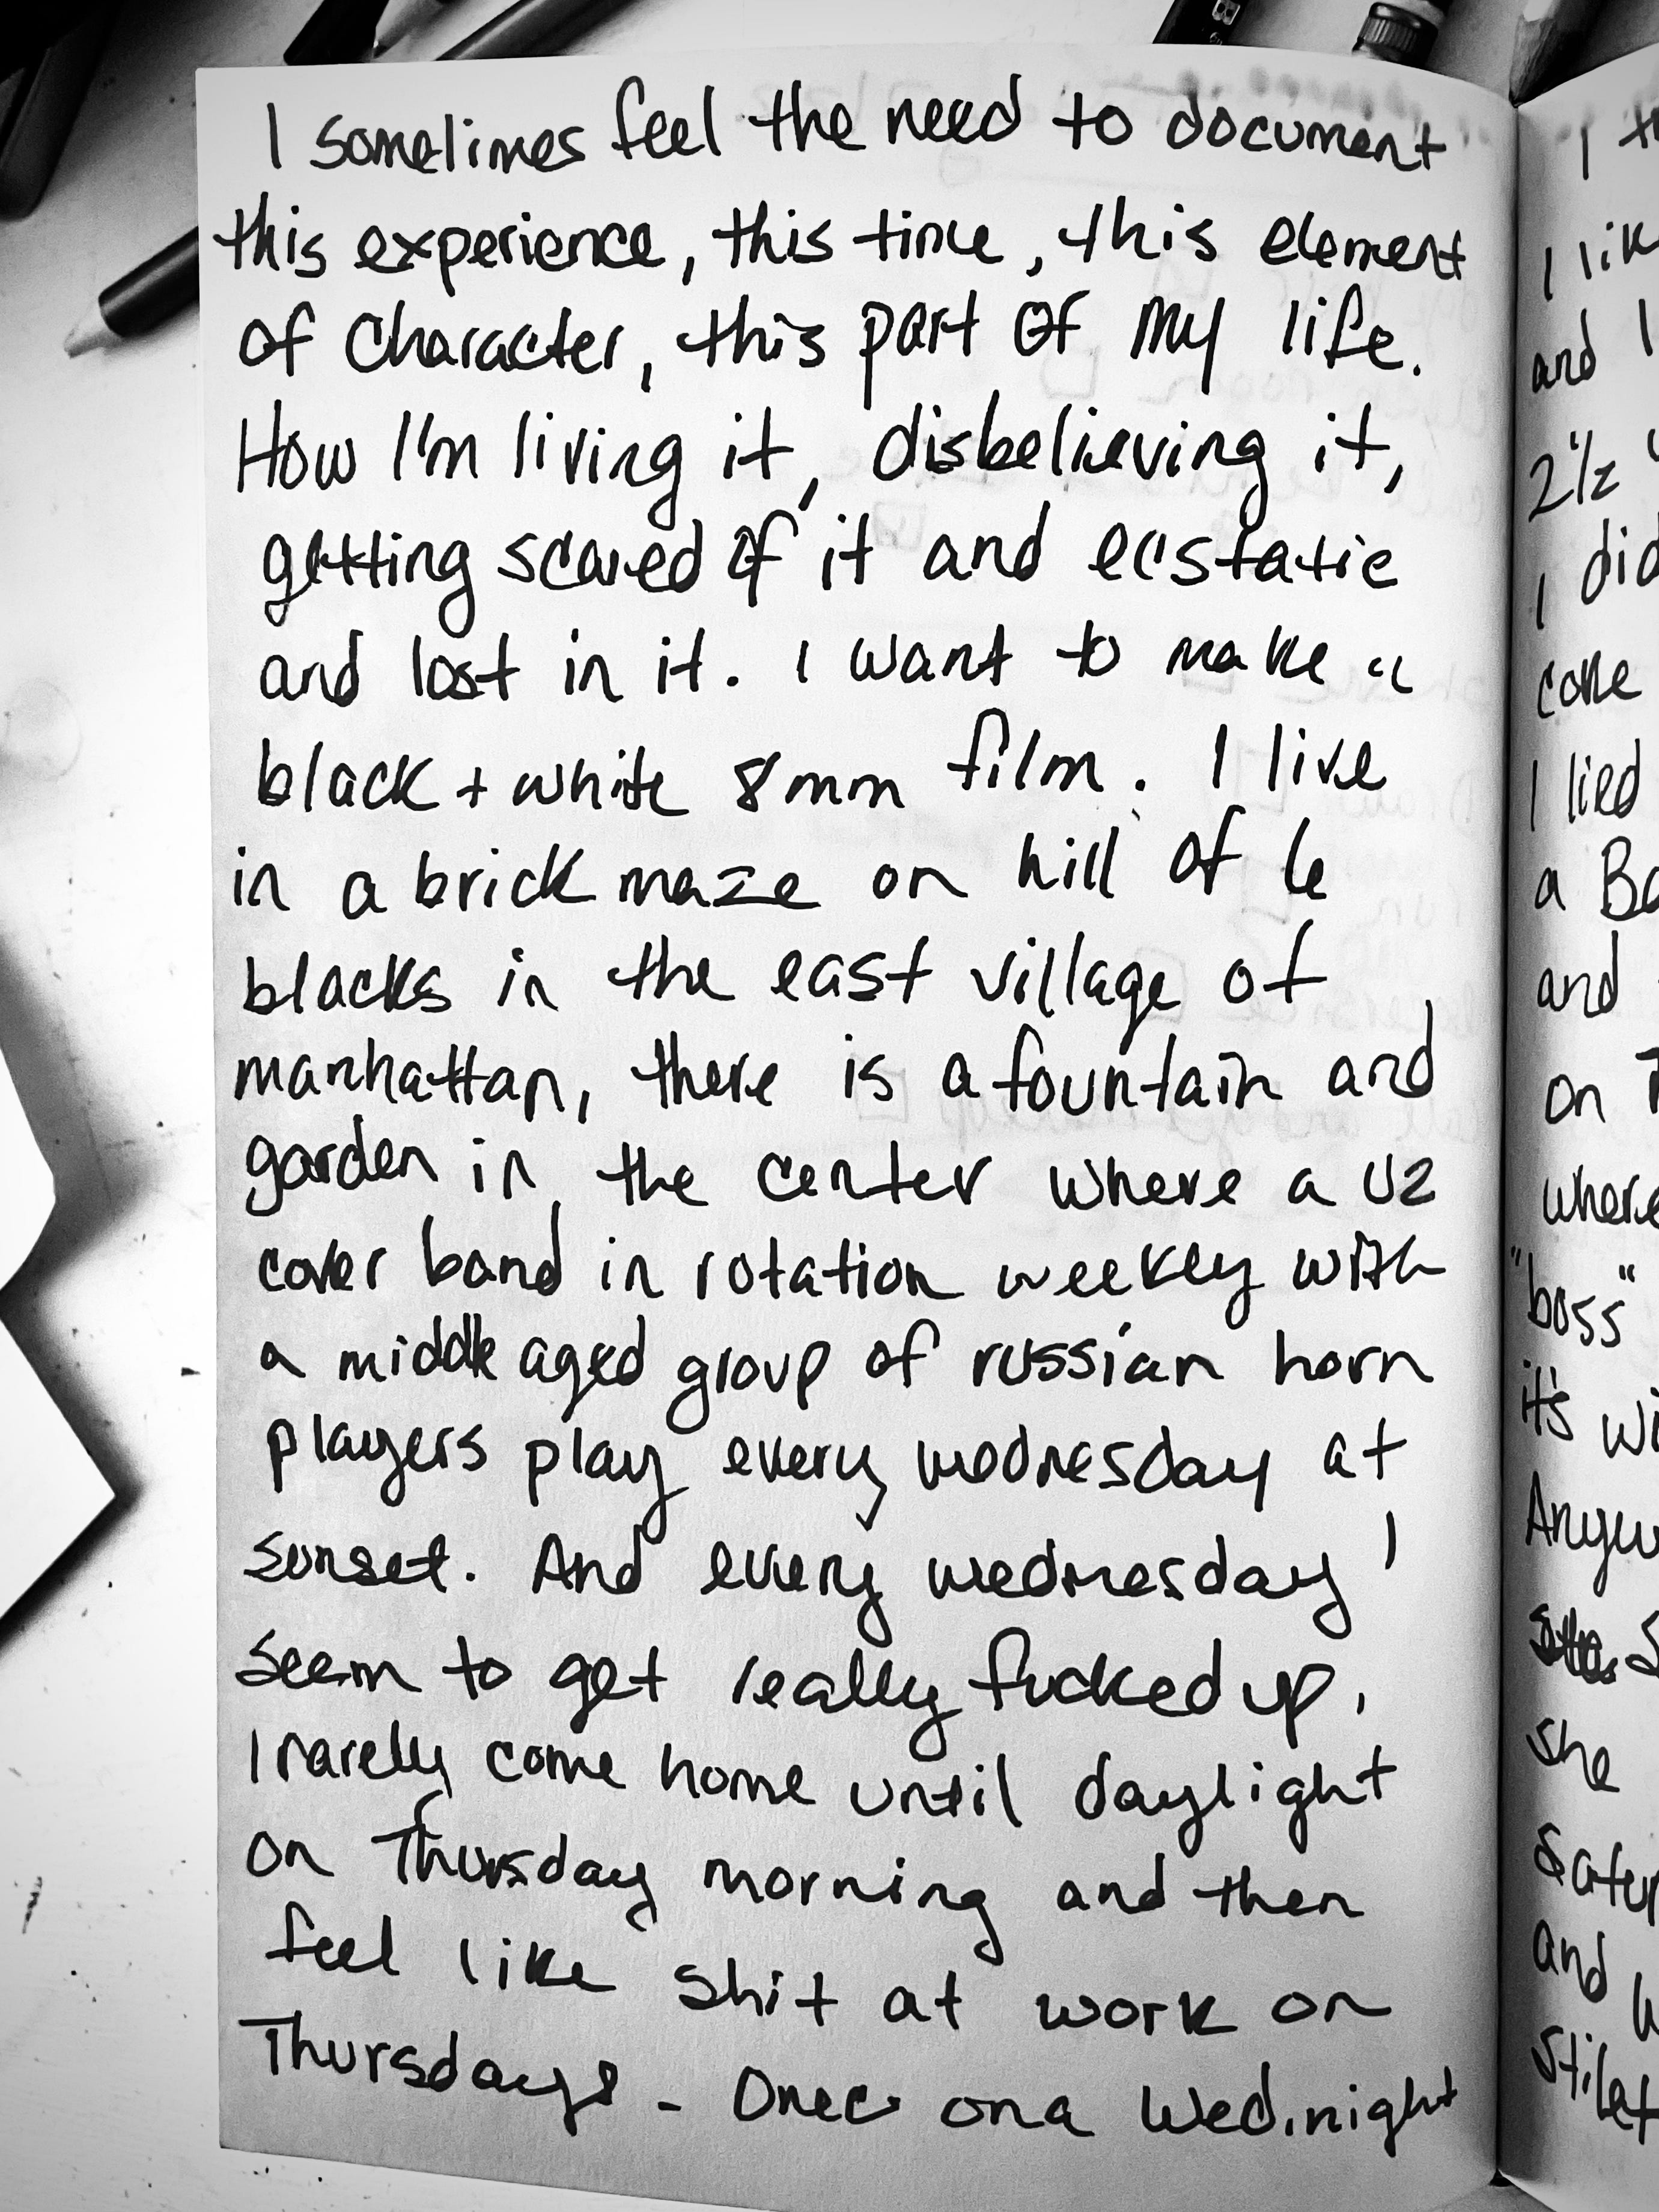 I sometimes feel the need to document
this experience, this time, this element
of character, this part of my life.
How I'm living it, disbelieving it,
getting scared of it and ecstatic
and lost in it. I want to make a
black + white 8mm film. I live
in a brick maze on hill of 6
blocks in the east village of
manhattan, there is a fountain and
garden in the center where a U2
cover band in rotation weekly with
a middle aged group of russian horn
players play every wednesday at
sunset. And every wednesday I
seem to get really fucked up.
I rarely come home until daylight
on Thursday morning and then
feel like shit at work on
Thursdays - Once on a Wed. night
I lik
and I
2 1/2
I did
coke
I lied
a Ba
and
on T
where
"boss"
it's wi
Anyw
she
Satur
and w
stilet